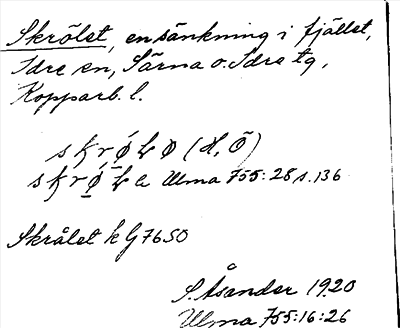 Skrölet, en sänkning i fjället,
Idre sn, Särna o. Idre tg,
Kopparb. l.
Ulma 755:28 s. 136
Skrålet k G7650
S. Åsander 1920
Ulma 755:16:26